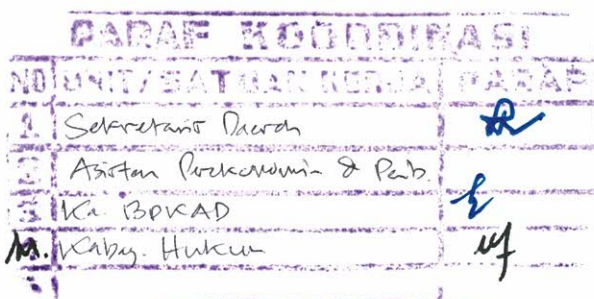 PARAF KOORDINASI
NO UNIT/SATUAN KERJA PARAF
1. Sekretaris Daerah
2. Asisten Perekonomian & Pemb.
3. Ka. BPKAD
4. Kabag. Hukum